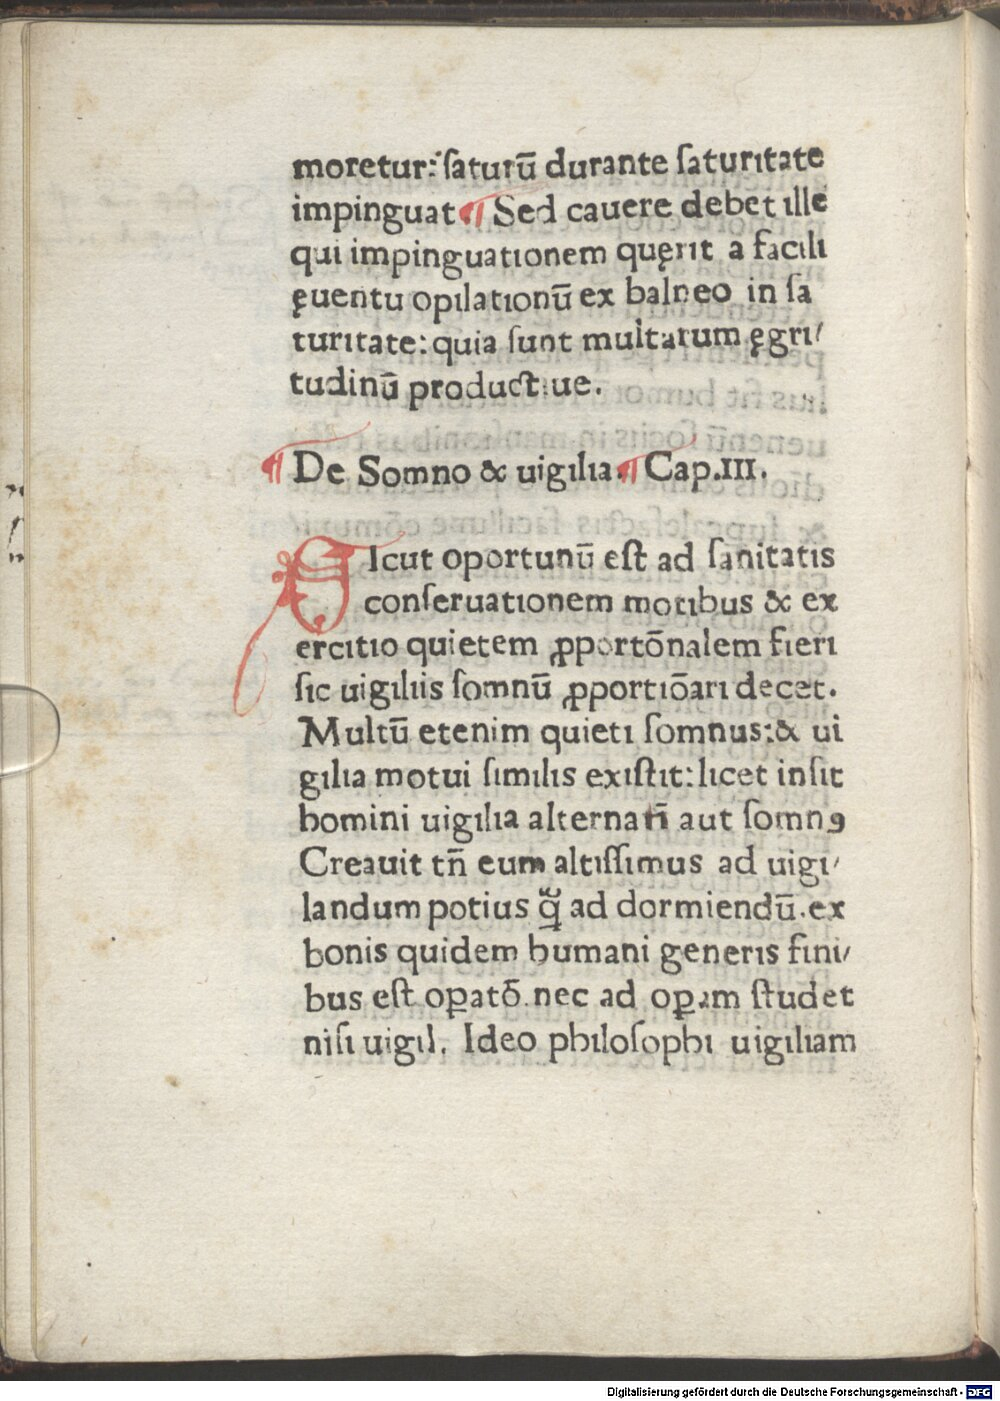 moretur: ſaturū durante ſaturitate
impinguat. ¶ Sed cauere debet ille
qui impinguationem quęrit a facili
ęuentu opilationū ex balneo in ſa
turitate: quia ſunt multarum ęgri/
tudinū productiue.
¶ De Somno & uigilia. ¶ Cap. III.
SIcut oportunū eſt ad ſanitatis
conſeruationem motibus & ex
ercitio quietem ꝓportōnalem fieri
ſic uigiliis ſomnū ꝓportiōari decet.
Multū etenim quieti ſomnus: & ui
gilia motui ſimilis exiſtit: licet inſit
homini uigilia alternatī aut ſomnꝯ
Creauit tn̄ eum altiſſimus ad uigi/
landum potius ꝙ̃ ad dormiendū. ex
bonis quidem humani generis fini/
bus eſt oꝑatō. nec ad oꝑam ſtudet
niſi uigil. Ideo philoſophi uigiliam
Digitalisierung gefördert durch die Deutsche Forschungsgemeinschaft - DFG